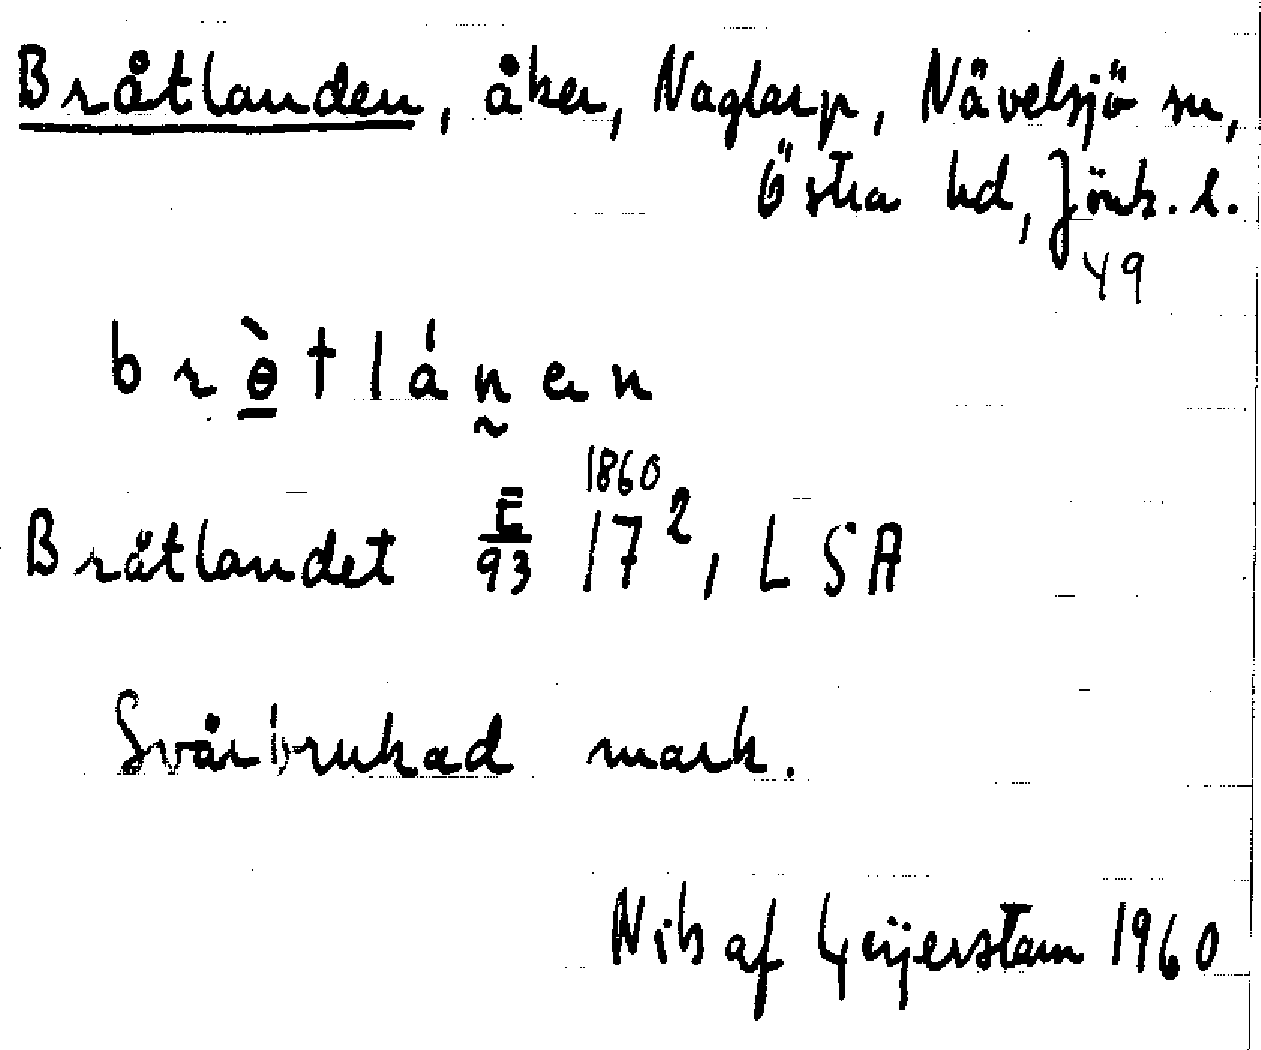 Bråtlanden, åker, Naglarp, Nävelsjö sn,
Östra hd, Jönk. l.
49
brɵ̲̀tlán̰en
1860
Bråtlandet E/93 17², LSA
Svårbrukad mark.
Nils af Geijerstam 1960